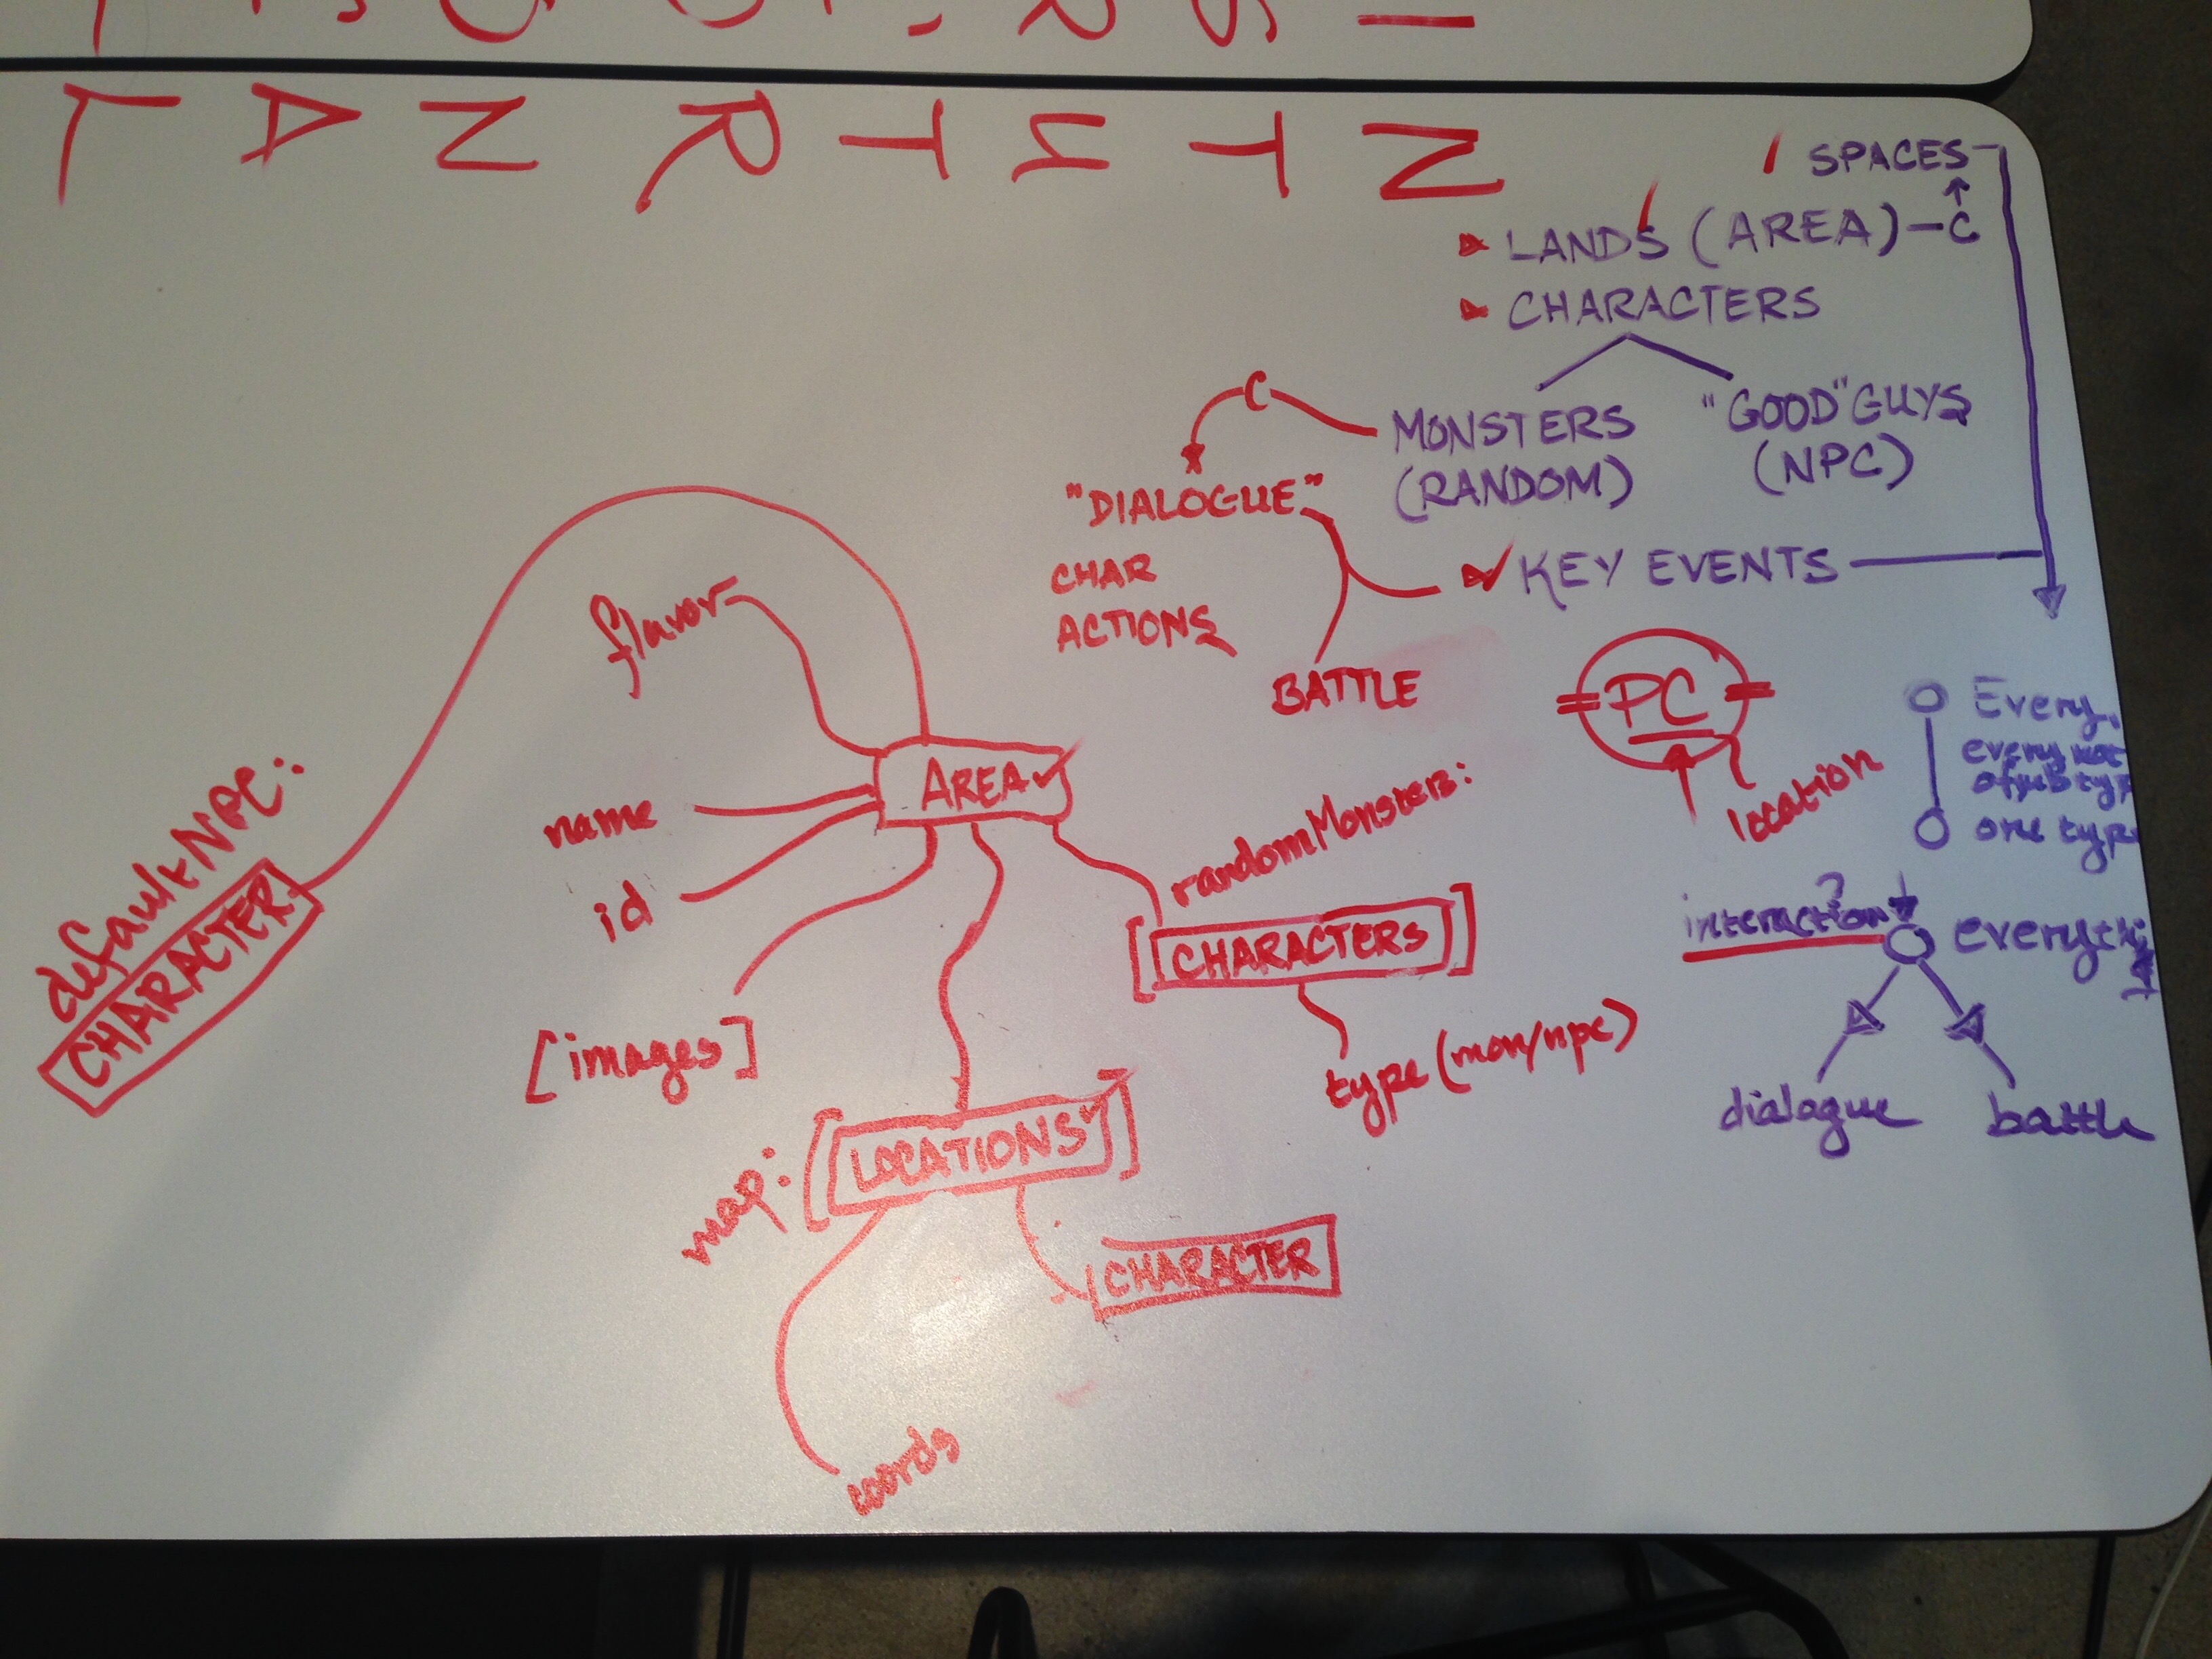 SPACES
LANDS (AREA) - C
CHARACTERS
MONSTERS
(RANDOM)
"GOOD" GUYS
(NPC)
C
"DIALOGUE"
CHAR
ACTIONS
BATTLE
KEY EVENTS
PC
location
Every
every
one type
interaction?
dialogue
battle
flavor
AREA
name
id
[images]
defaultNPC:
CHARACTER
randomMonsters:
[CHARACTERS]
type (mon/npc)
map: [LOCATIONS]
CHARACTER
coords